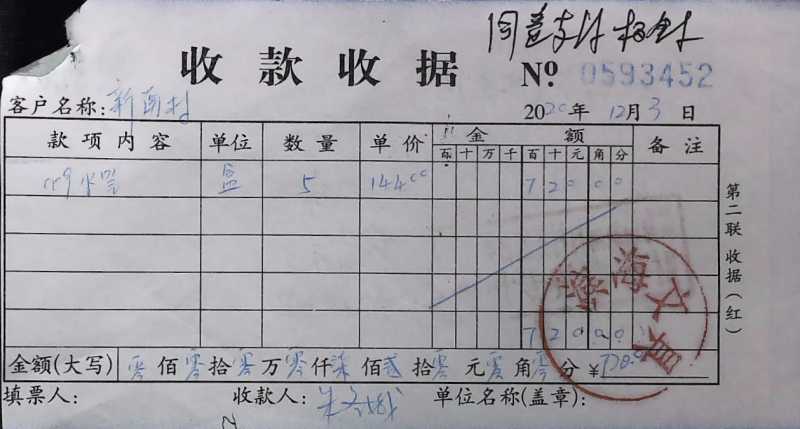 同意支付
收款收据 Nº 0593452
客户名称: 新面村 2020年 12月 3 日
款项内容 单位 数量 单价 金额 备注
百 十 万 千 百 十 元 角 分
盒 5 144.00 7 2 0 0 0
7 2 0 0 0
金额(大写) 零 佰 零 拾 零 万 零 仟 柒 佰 贰 拾 零 元 零 角 零 分 ¥720.00
填票人: 收款人: 单位名称(盖章):
第二联 收据(红)